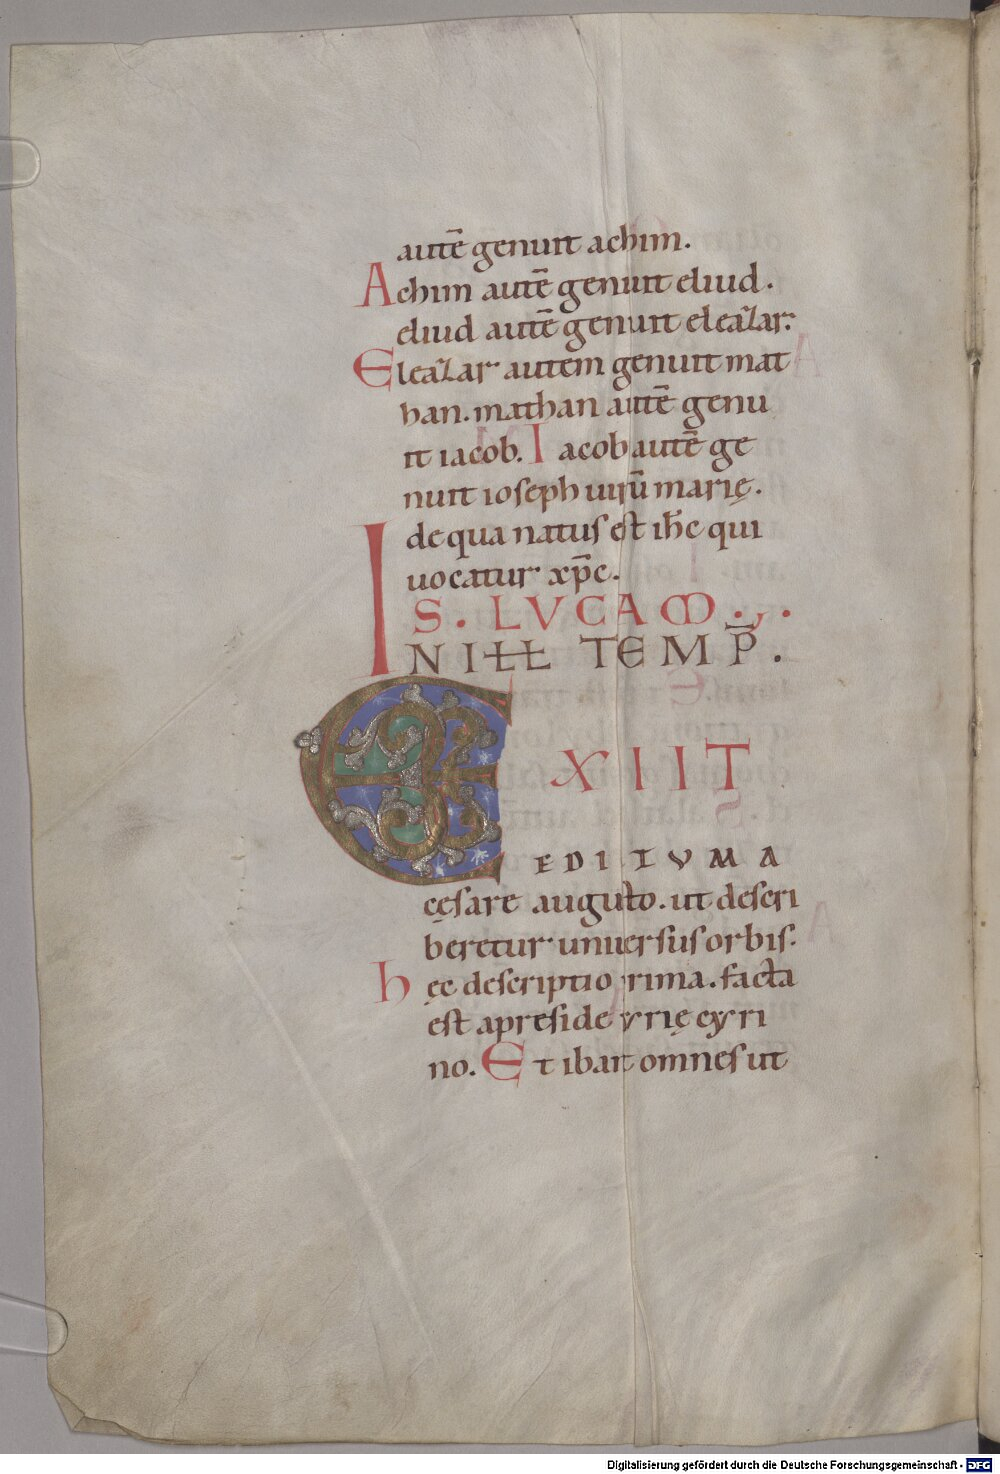 autē genuit achim.
Achim autē genuit eliud.
eliud autē genuit eleazar.
Eleazar autem genuit mat
han. mathan autē genu
it iacob. Iacob autē ge
nuit ioseph uirū marię.
de qua natus est ih̄c qui
uocatur xp̄c.
S. LVCAM.
IN ILL TEMP̄.
EXIIT
EDITVM A
cęsare augusto. ut descri
beretur uniuersus orbis.
hęc descriptio rima. facta
est apreside yrię cyri
no. Et ibant omnes ut
Digitalisierung gefördert durch die Deutsche Forschungsgemeinschaft - DFG